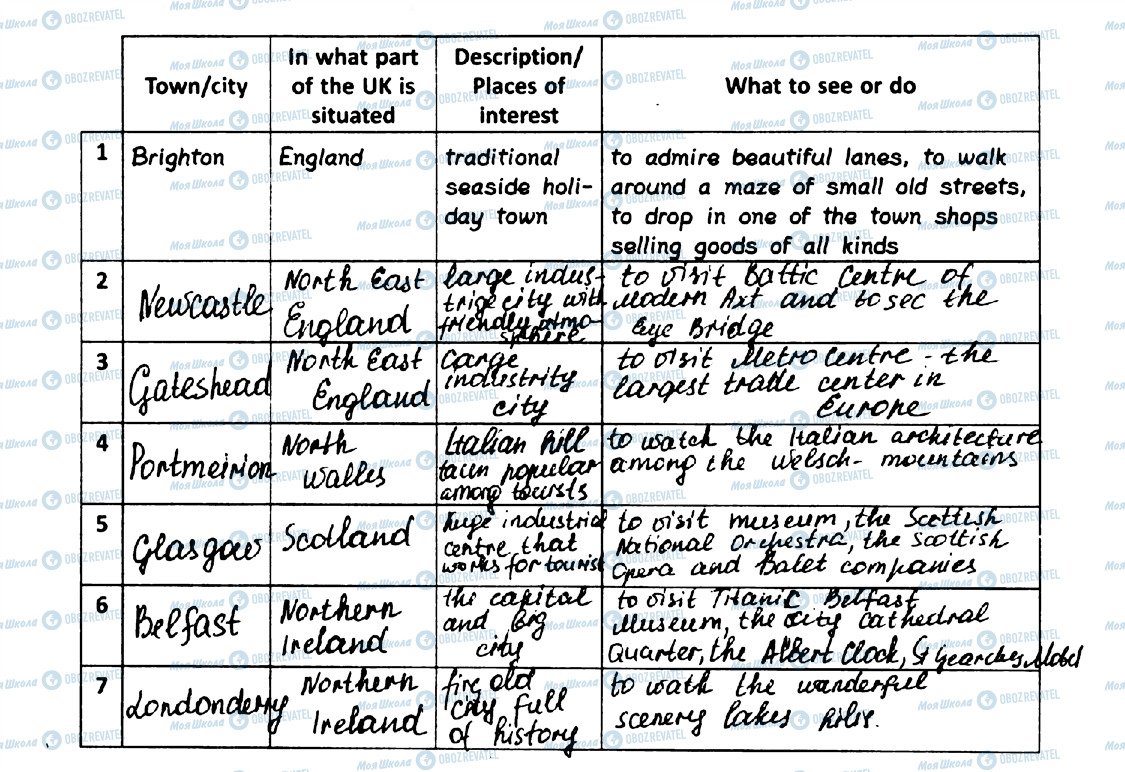 Town/city
In what part
of the UK is
situated
Description/
Places of
interest
What to see or do
1
Brighton
England
traditional
seaside holi-
day town
to admire beautiful lanes, to walk
around a maze of small old streets,
to drop in one of the town shops
selling goods of all kinds
2
Newcastle
North East
England
large indus-
city with
friendly atmo-
sphere
to visit Battic Centre of
Modern Art and to see the
Eye Bridge
3
Gateshead
North East
England
Large
industrity
city
to visit Metro Centre - the
largest trade center in
Europe
4
Portmeirion
North
Walles
Italian hill
popular
among tourists
to watch the Italian architecture
among the Welsch- mountains
5
Glasgow
Scotland
huge industrial
centre that
works for tourist
to visit museum, the Scottish
National Orchestra, the Scottish
Opera and Balet companies
6
Belfast
Northern
Ireland
the capital
and big
city
to visit Titanic Belfast
Museum, the City Cathedral
Quarter, the Albert Clock,
7
Londonderry
Northern
Ireland
old
city full
of history
to wath the wanderful
scenery lakes hills.
Моя Школа OBOZREVATEL